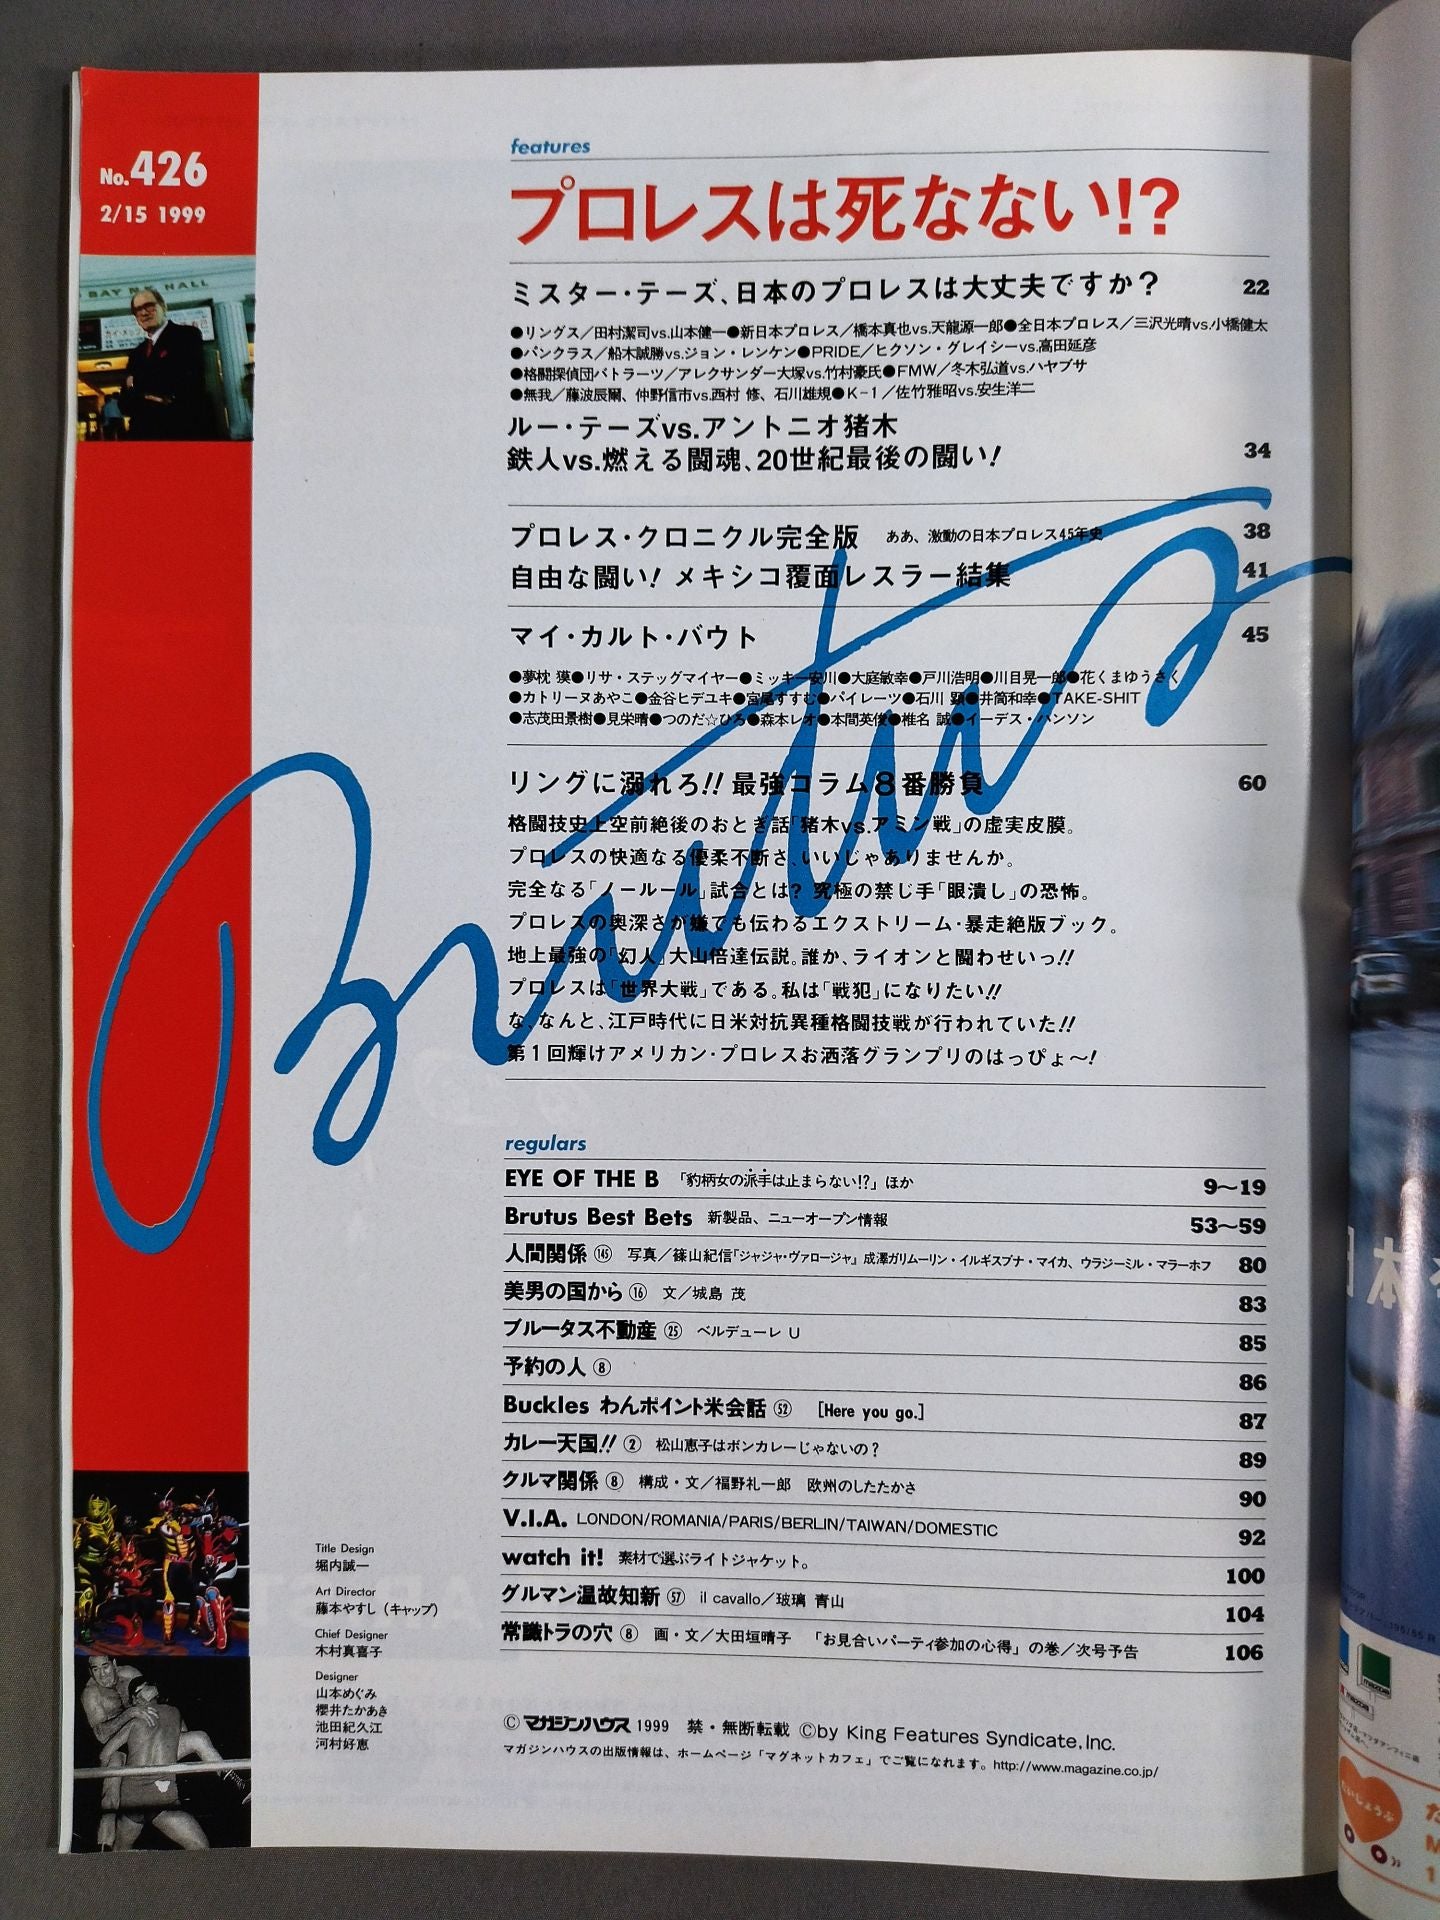 No.426
2/15 1999
BAY N
HALL
features
プロレスは死なない!?
ミスター・テーズ、日本のプロレスは大丈夫ですか? 22
●リングス/田村潔司vs.山本健一●新日本プロレス/橋本真也vs.天龍源一郎●全日本プロレス/三沢光晴vs.小橋健太
●パンクラス/船木誠勝vs.ジョン・レンケン●PRIDE/ヒクソン・グレイシーvs.高田延彦
●格闘探偵団バトラーツ/アレクサンダー大塚vs.竹村豪氏●FMW/冬木弘道vs.ハヤブサ
●無我/藤波辰爾、仲野信市vs.西村 修、石川雄規●K-1/佐竹雅昭vs.安生洋二
ルー・テーズvs.アントニオ猪木
鉄人vs.燃える闘魂、20世紀最後の闘い! 34
プロレス・クロニクル完全版 ああ、激動の日本プロレス45年史 38
自由な闘い! メキシコ覆面レスラー結集 41
マイ・カルト・バウト 45
●夢枕 獏●リサ・ステッグマイヤー●ミッキー安川●大庭敏幸●戸川浩明●川目晃一郎●花くまゆうさく
●カトリーヌあやこ●金谷ヒデユキ●宮尾すすむ●パイレーツ●石川 顕●井筒和幸●TAKE-SHIT
●志茂田景樹●見栄晴●つのだ☆ひろ●森本レオ●本間英俊●椎名 誠●イーデス・ハンソン
Brutus
リングに溺れろ!! 最強コラム8番勝負 60
格闘技史上空前絶後のおとぎ話「猪木vs.アミン戦」の虚実皮膜。
プロレスの快適なる優柔不断さ、いいじゃありませんか。
完全なる「ノールール」試合とは? 究極の禁じ手「眼潰し」の恐怖。
プロレスの奥深さが嫌でも伝わるエクストリーム・暴走絶版ブック。
地上最強の「幻人」大山倍達伝説。誰か、ライオンと闘わせいっ!!
プロレスは「世界大戦」である。私は「戦犯」になりたい!!
な、なんと、江戸時代に日米対抗異種格闘技戦が行われていた!!
第1回輝けアメリカン・プロレスお洒落グランプリのはっぴょ〜!
regulars
EYE OF THE B 「豹柄女の派手は止まらない!?」ほか 9〜19
Brutus Best Bets 新製品、ニューオープン情報 53〜59
人間関係 (145) 写真/篠山紀信『ジャジャ・ヴァロージャ』 成澤ガリムーリン・イルギスブナ・マイカ、ウラジーミル・マラーホフ 80
美男の国から ⑯ 文/城島 茂 83
ブルータス不動産 ㉕ ベルデューレ U 85
予約の人 ⑧ 86
Buckles わんポイント米会話 (52) [Here you go.] 87
カレー天国!! ② 松山恵子はボンカレーじゃないの? 89
クルマ関係 ⑧ 構成・文/福野礼一郎 欧州のしたたかさ 90
V.I.A. LONDON/ROMANIA/PARIS/BERLIN/TAIWAN/DOMESTIC 92
watch it! 素材で選ぶライトジャケット。 100
グルマン温故知新 (57) il cavallo/玻璃 青山 104
常識トラの穴 ⑧ 画・文/大田垣晴子 「お見合いパーティ参加の心得」の巻/次号予告 106
Title Design
堀内誠一
Art Director
藤本やすし(キャップ)
Chief Designer
木村真喜子
Designer
山本めぐみ
櫻井たかあき
池田紀久江
河村好恵
©マガジンハウス 1999 禁・無断転載 ©by King Features Syndicate,Inc.
マガジンハウスの出版情報は、ホームページ「マグネットカフェ」でご覧になれます。http://www.magazine.co.jp/
mazda
mazda